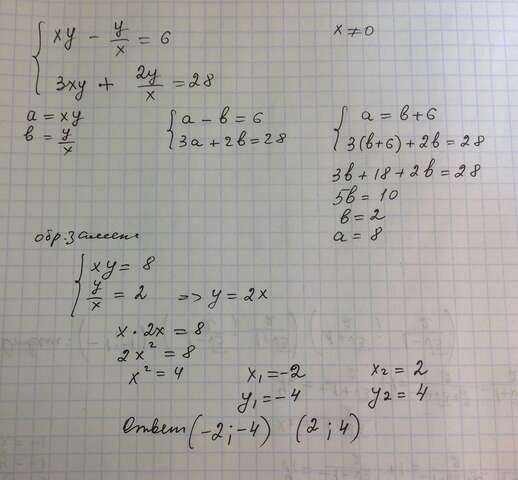 xy - y/x = 6
x ≠ 0
3xy + 2y/x = 28
a = xy
b = y/x
a - b = 6
3a + 2b = 28
a = b + 6
3(b+6) + 2b = 28
3b + 18 + 2b = 28
5b = 10
b = 2
a = 8
обр. замена
xy = 8
y/x = 2 => y = 2x
x · 2x = 8
2x² = 8
x² = 4
x₁ = -2
x₂ = 2
y₁ = -4
y₂ = 4
Ответ (-2; -4) (2; 4)